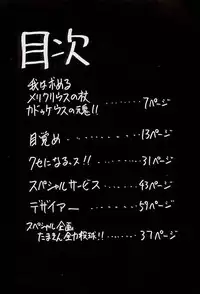 目次
我は求める
メリクリウスの杖
カドゥケウスの頭!!‥‥‥7ページ
目覚め‥‥‥‥13ページ
クセになるっス!!‥‥31ページ
スペシャルサービス‥‥43ページ
デザイアー‥‥‥‥59ページ
スペシャル企画
たまきん全力投球!!‥‥37ページ